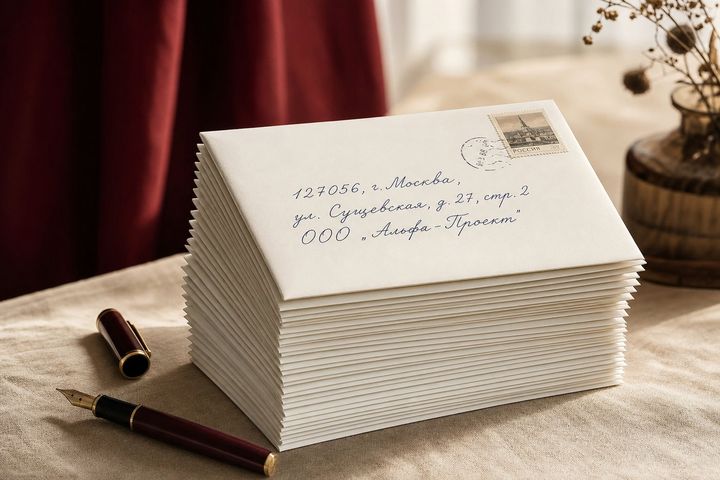 РОССИЯ
127056, г. Москва,
ул. Сущевская, д. 27, стр. 2
ООО „Альфа-Проект"